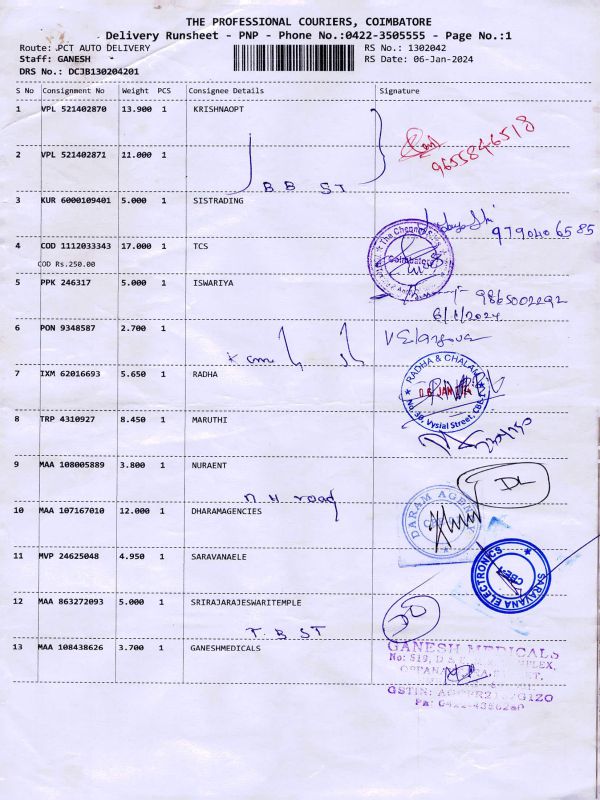 THE PROFESSIONAL COURIERS, COIMBATORE
Delivery Runsheet - PNP - Phone No.:0422-3505555 - Page No.:1
Route: PCT AUTO DELIVERY RS No.: 1302042
Staff: GANESH RS Date: 06-Jan-2024
DRS No.: DCJB130204201
S No Consignment No Weight PCS Consignee Details Signature
1 VPL 521402870 13.900 1 KRISHNAOPT
9655846518
2 VPL 521402871 11.000 1
B B ST
3 KUR 6000109401 5.000 1 SISTRADING
9790406585
4 COD 1112033343 17.000 1 TCS
COD Rs.250.00
Coimbatore
5 PPK 246317 5.000 1 ISWARIYA
9865002292
6/1/2024
6 PON 9348587 2.700 1
7 IXM 62016693 5.650 1 RADHA
RADHA & CHALAM
No. 30, Vysial Street, CBE-1
8 TRP 4310927 8.450 1 MARUTHI
9 MAA 108005889 3.800 1 NURAENT
DL
N H road
10 MAA 107167010 12.000 1 DHARAMAGENCIES
DARAM AGENCY
11 MVP 24625048 4.950 1 SARAVANAELE
SARAVANA ELECTRONICS
CBE-1
12 MAA 863272093 5.000 1 SRIRAJARAJESWARITEMPLE
T B ST
13 MAA 108438626 3.700 1 GANESHMEDICALS
GANESH MEDICALS
No: 519,
GSTIN: